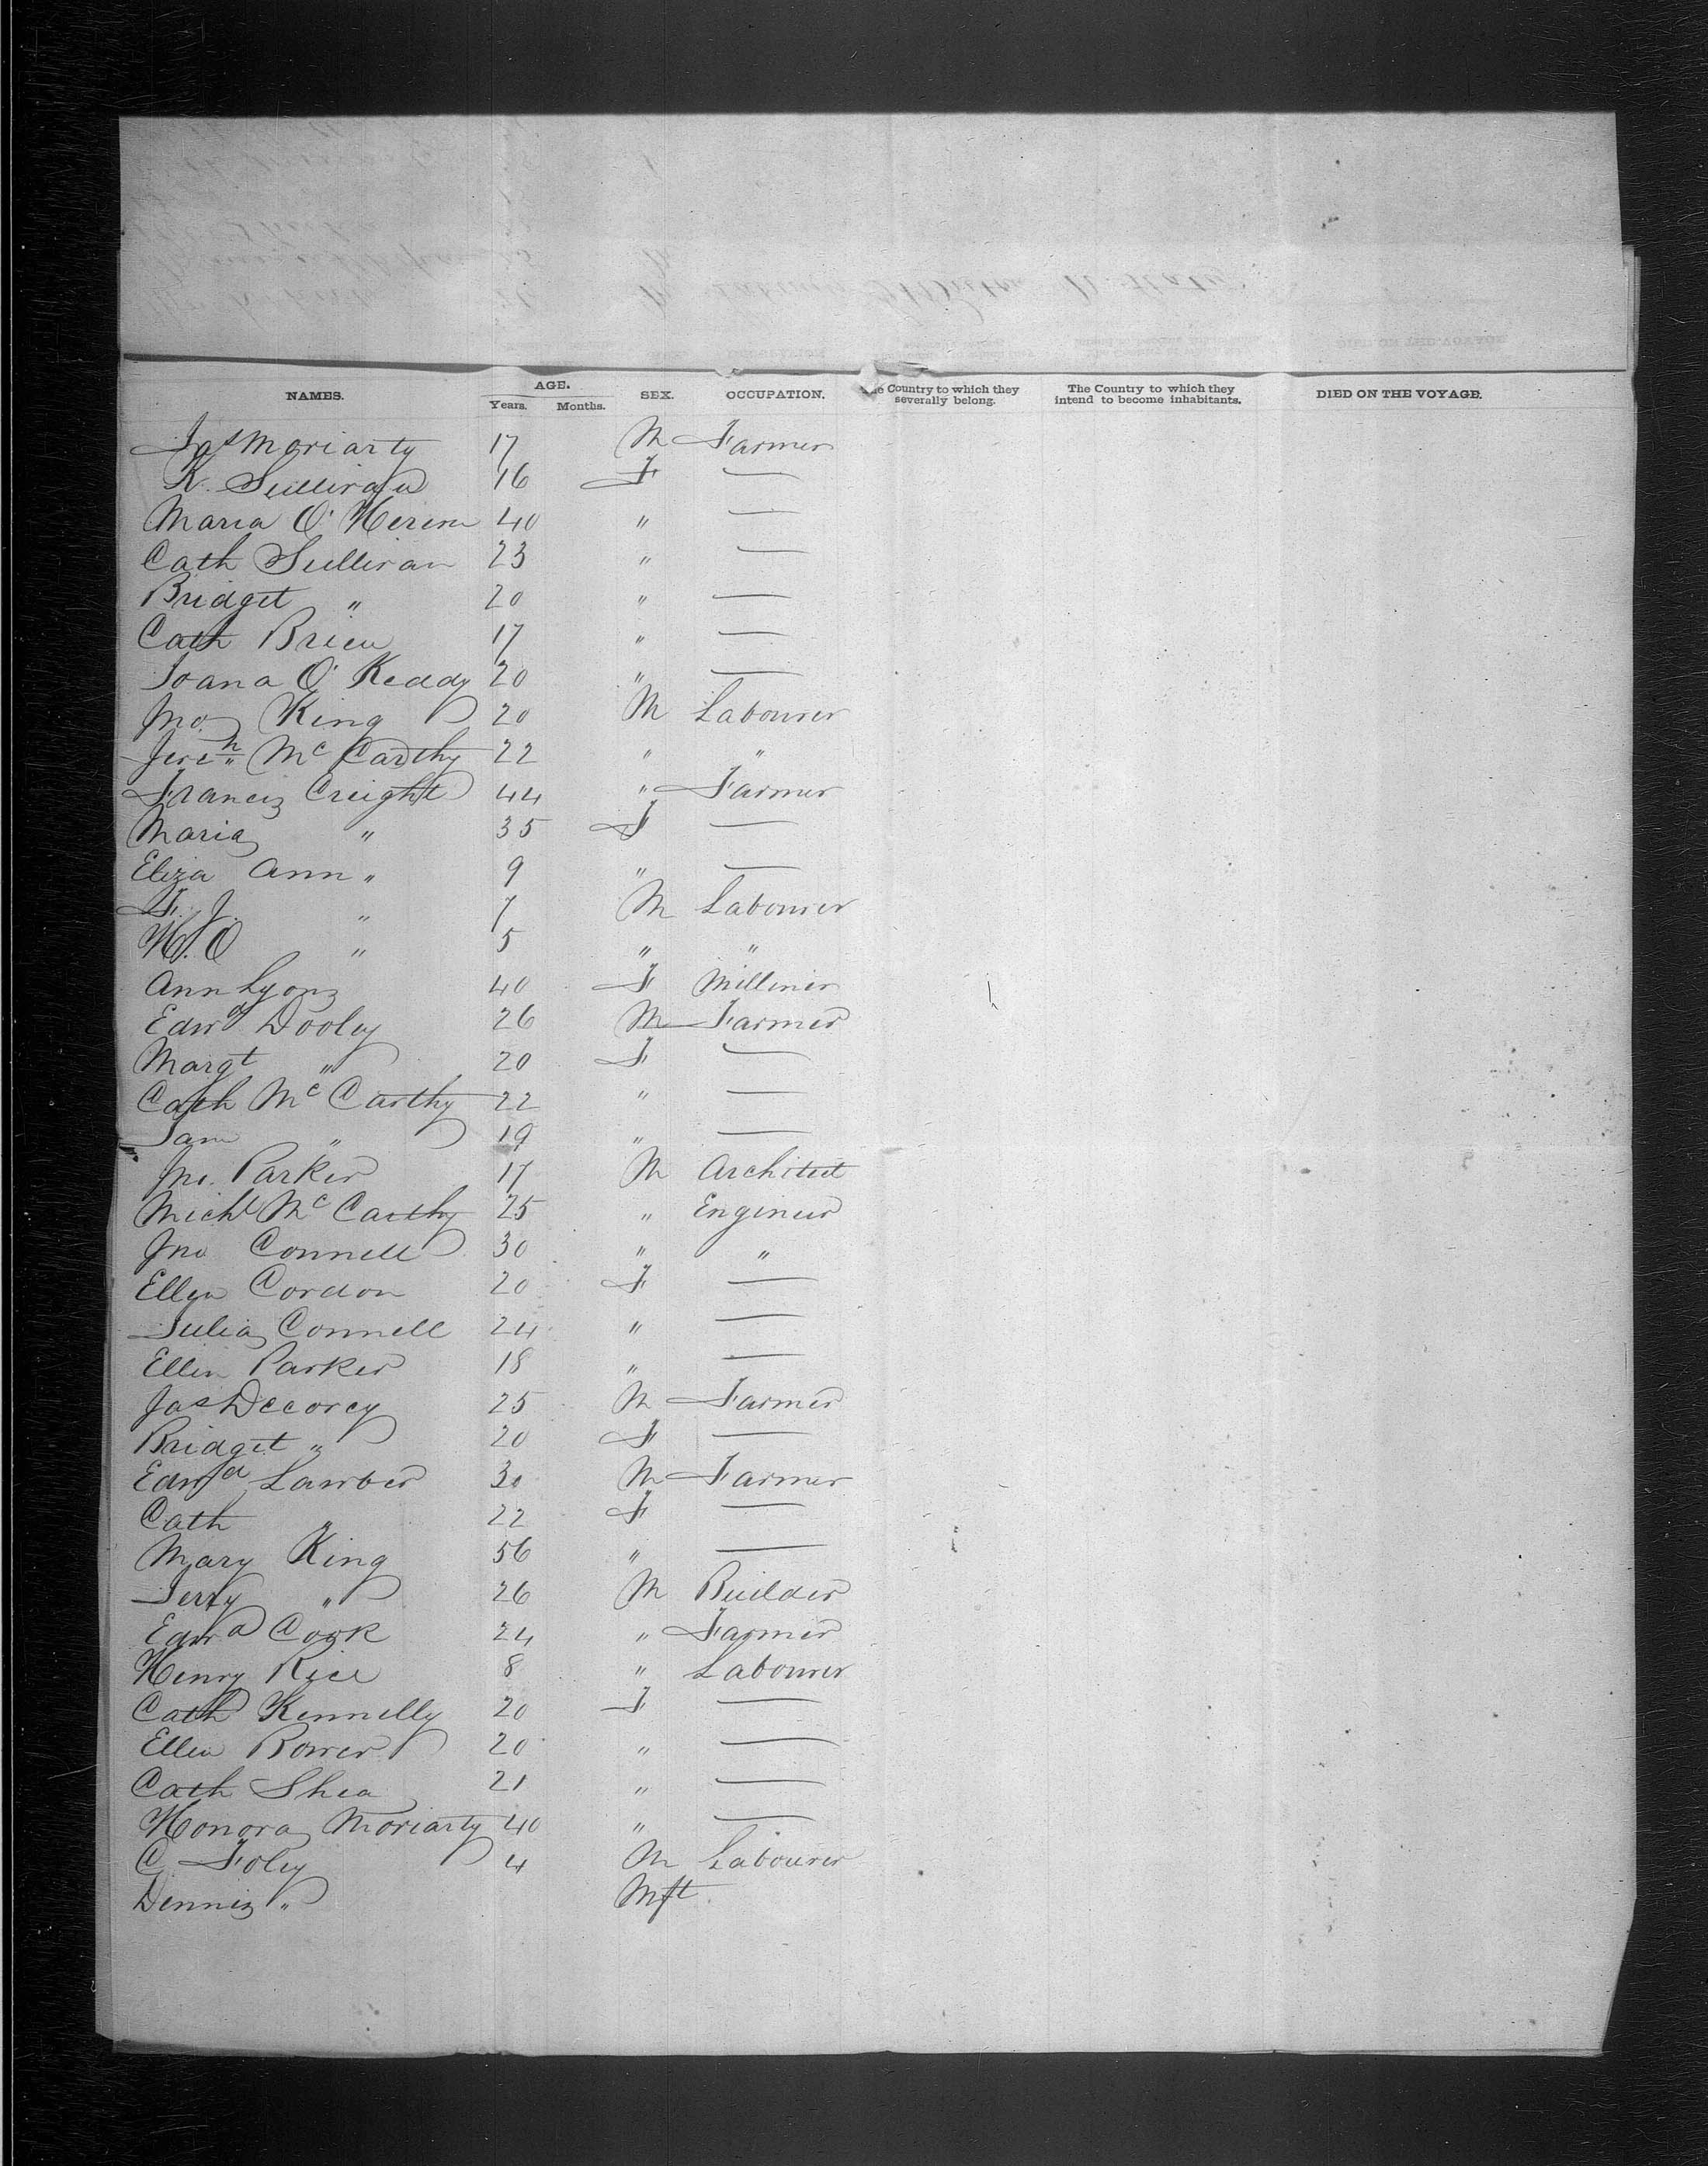 NAMES. AGE. Years. Months. SEX. OCCUPATION. The Country to which they severally belong. The Country to which they intend to become inhabitants. DIED ON THE VOYAGE.
Jas Moriarty 17 M Farmer
K. Sullivan 16 F —
Maria O' 40 " —
Cath Sullivan 23 " —
Bridget " 20 " —
Cath Brien 17 " —
Joana O' Keddy 20 " —
Jno King 20 M Labourer
Jereh Mc Carthy 22 " "
Francis Creight 44 " Farmer
Maria " 35 F —
Eliza Ann " 9 " —
F. J. " 7 M Labourer
W. O " 5 " "
Ann Lyons 40 F Milliner
Edwd Dooley 26 M Farmer
Margt " 20 F —
Cath Mc Carthy 22 " —
Jane " 19 " —
Jno. Parker 17 M Architect
Michl Mc Carthy 25 " Engineer
Jno Connell 30 " "
Ellen Cordon 20 F —
Julia Connell 24 " —
Ellen Parker 18 " —
Jas Decorcy 25 M Farmer
Bridget " 20 F —
Edwd Lawber 30 M Farmer
Cath " 22 F —
Mary King 56 " —
Jerry " 26 M Builder
Edwd Cook 24 " Farmer
Henry Rice 8 " Labourer
Cath Kennelly 20 F —
Ellen Bower 20 " —
Cath Shea 21 " —
Honora Moriarty 40 " —
C Foley 4 M Labourer
Dennis " Mft